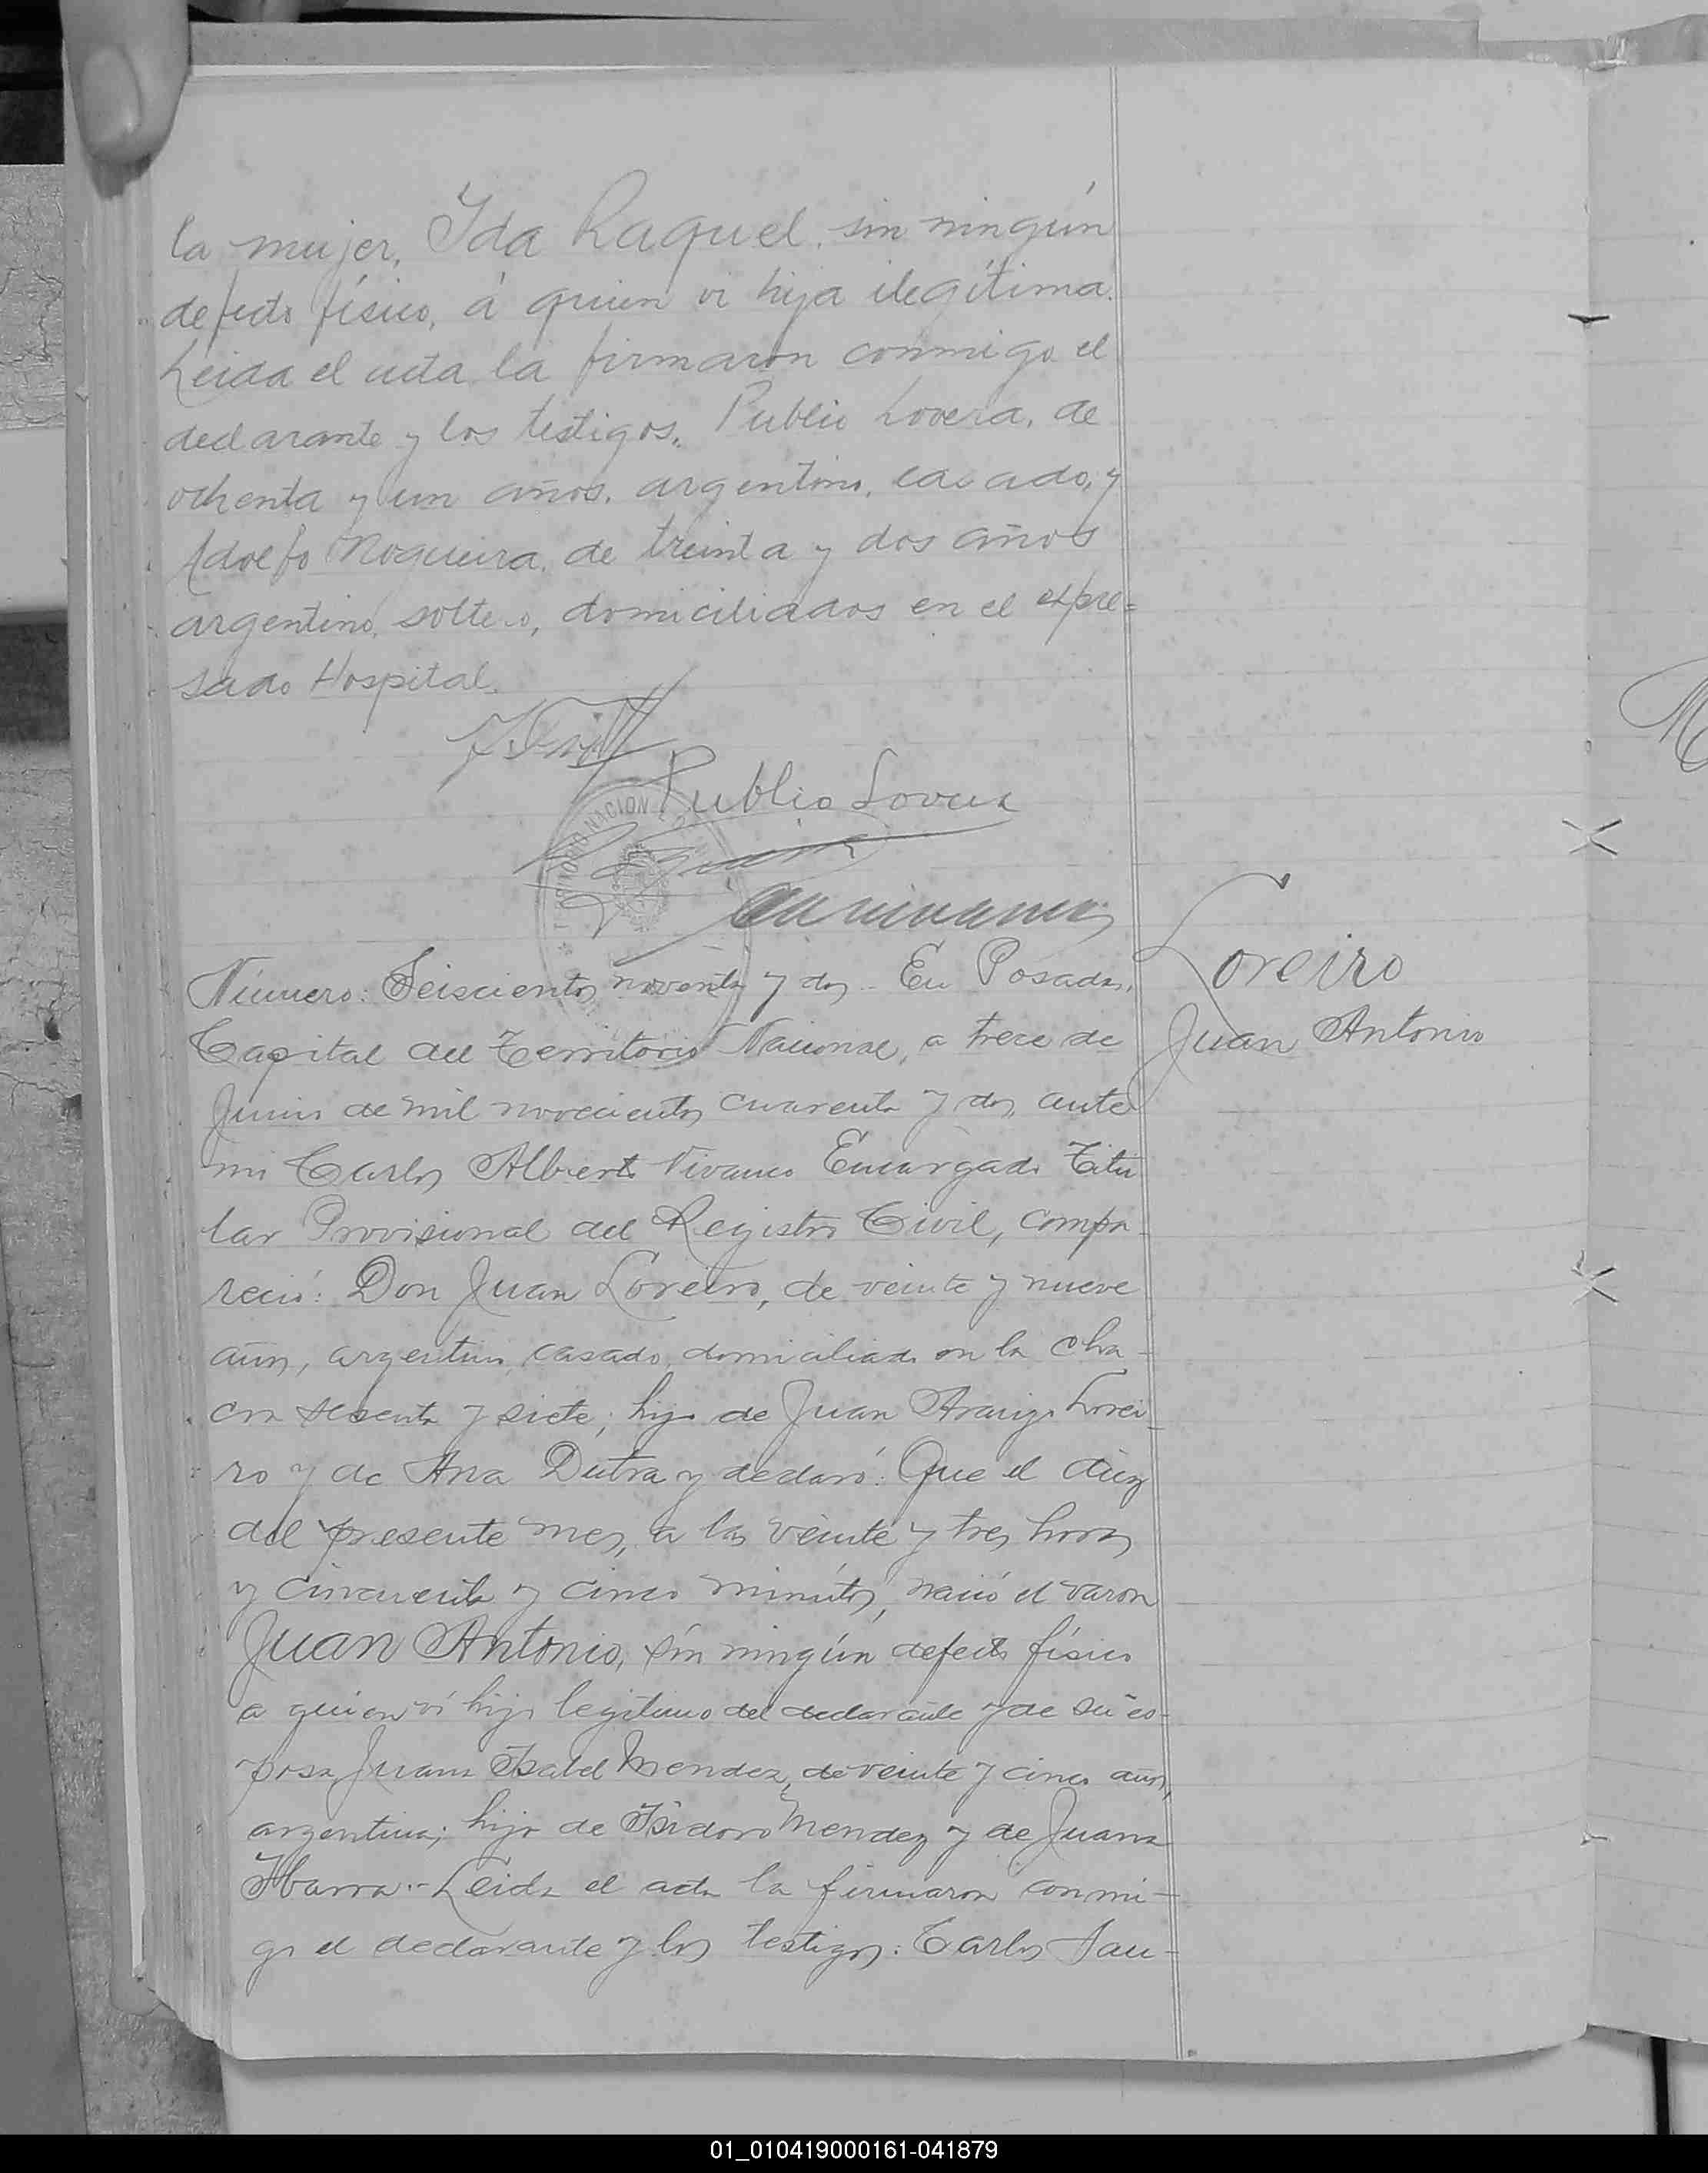 la mujer, Ida Raquel, sin ningún
defecto físico, á quien vi hija ilegítima.
Leida el acta la firmaron conmigo el
declarante y los testigos. Publio Lovera, de
ochenta y un años, argentino, casado, y
Adolfo Nogueira, de treinta y dos años
argentino, soltero, domiciliados en el expre=
sado Hospital.
Publio Lovera
NACION
Número: Seiscientos noventa y dos - En Posadas,
Capital del Territorio Nacional, a trece de
Junio de mil novecientos cuarenta y dos, ante
mi Carlos Alberto Vivanco Encargado Titu
lar Provisional del Registro Civil, compa-
reció: Don Juan Loreiro, de veinte y nueve
años, argentino, casado, domiciliado en la cha-
cra sesenta y siete; hijo de Juan Araujo Lorei-
ro y de Ana Dutra y declaró: Que el diez
del presente mes, a las veinte y tres horas
y cincuenta y cinco minutos, nació el varon
Juan Antonio, sin ningún defecto físico
a quien ví hijo legítimo del declarante y de su es-
posa Juana Isabel Mendez, de veinte y cinco años,
argentina; hija de Isidoro Mendez y de Juana
Ibarra.- Leida el acta la firmaron conmi-
go el declarante y los testigos: Carlos Sau-
Loreiro
Juan Antonio
01_010419000161-041879